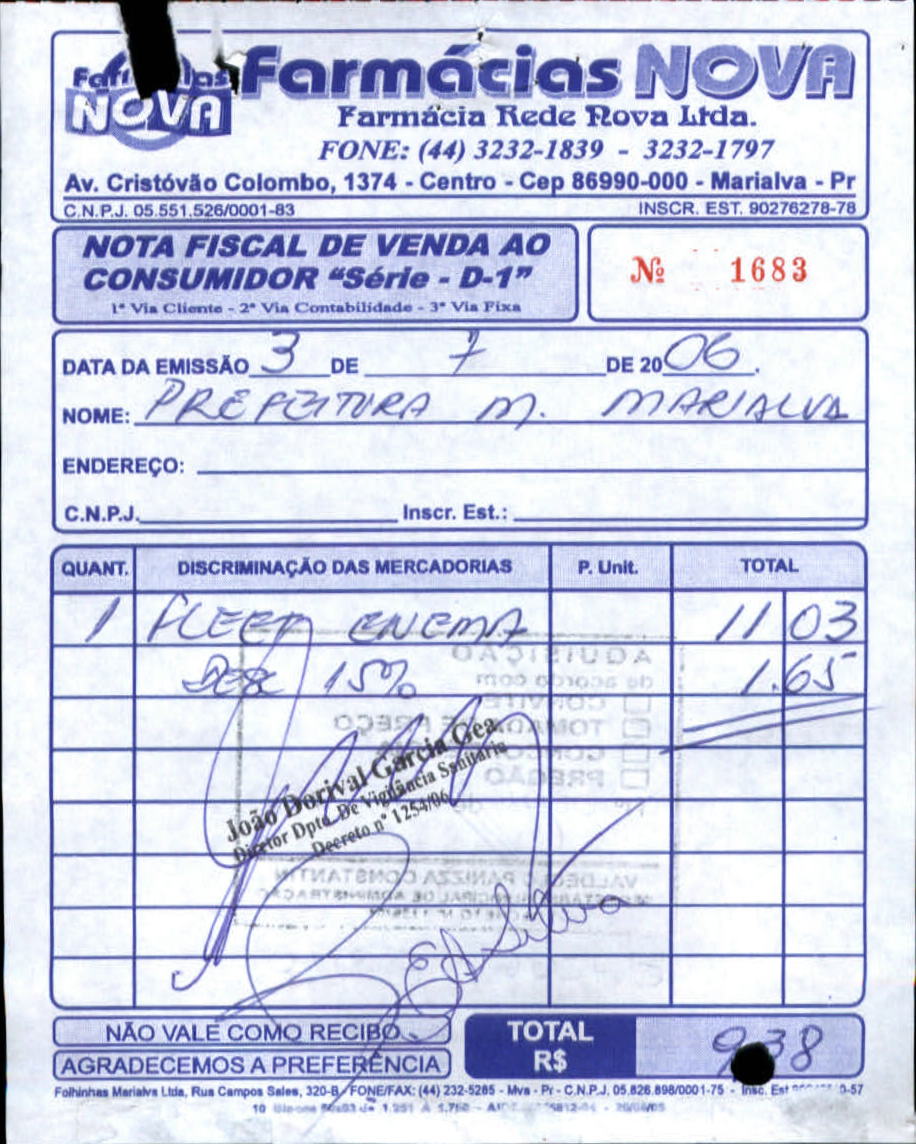 Farmácias NOVA
NOVA
Farmácia Rede Nova Ltda.
FONE: (44) 3232-1839 - 3232-1797
Av. Cristóvão Colombo, 1374 - Centro - Cep 86990-000 - Marialva - Pr
C.N.P.J. 05.551.526/0001-83 INSCR. EST. 90276278-78
NOTA FISCAL DE VENDA AO
CONSUMIDOR "Série - D-1"
1ª Via Cliente - 2ª Via Contabilidade - 3ª Via Fixa
Nº 1683
DATA DA EMISSÃO 3 DE 7 DE 2006.
NOME: PREFEITURA M. MARIALVA
ENDEREÇO:
C.N.P.J. Inscr. Est.:
QUANT. DISCRIMINAÇÃO DAS MERCADORIAS P. Unit. TOTAL
1 FLEET ENEMA 11 03
15% 1.65
AQUISIÇÃO
de acordo com
CONVITE
TOMADA DE PREÇO
PREGÃO
João Dorival Garcia Gea
Diretor Dpto. De Vigilância Sanitária
Decreto nº 1254/06
PANIZZA CONSTANTIN
NÃO VALE COMO RECIBO
AGRADECEMOS A PREFERÊNCIA
TOTAL
R$ 9,38
Folhinhas Marialva Ltda, Rua Campos Sales, 320-B - FONE/FAX: (44) 232-5285 - Mva - Pr - C.N.P.J. 05.826.898/0001-75 - Insc. Est